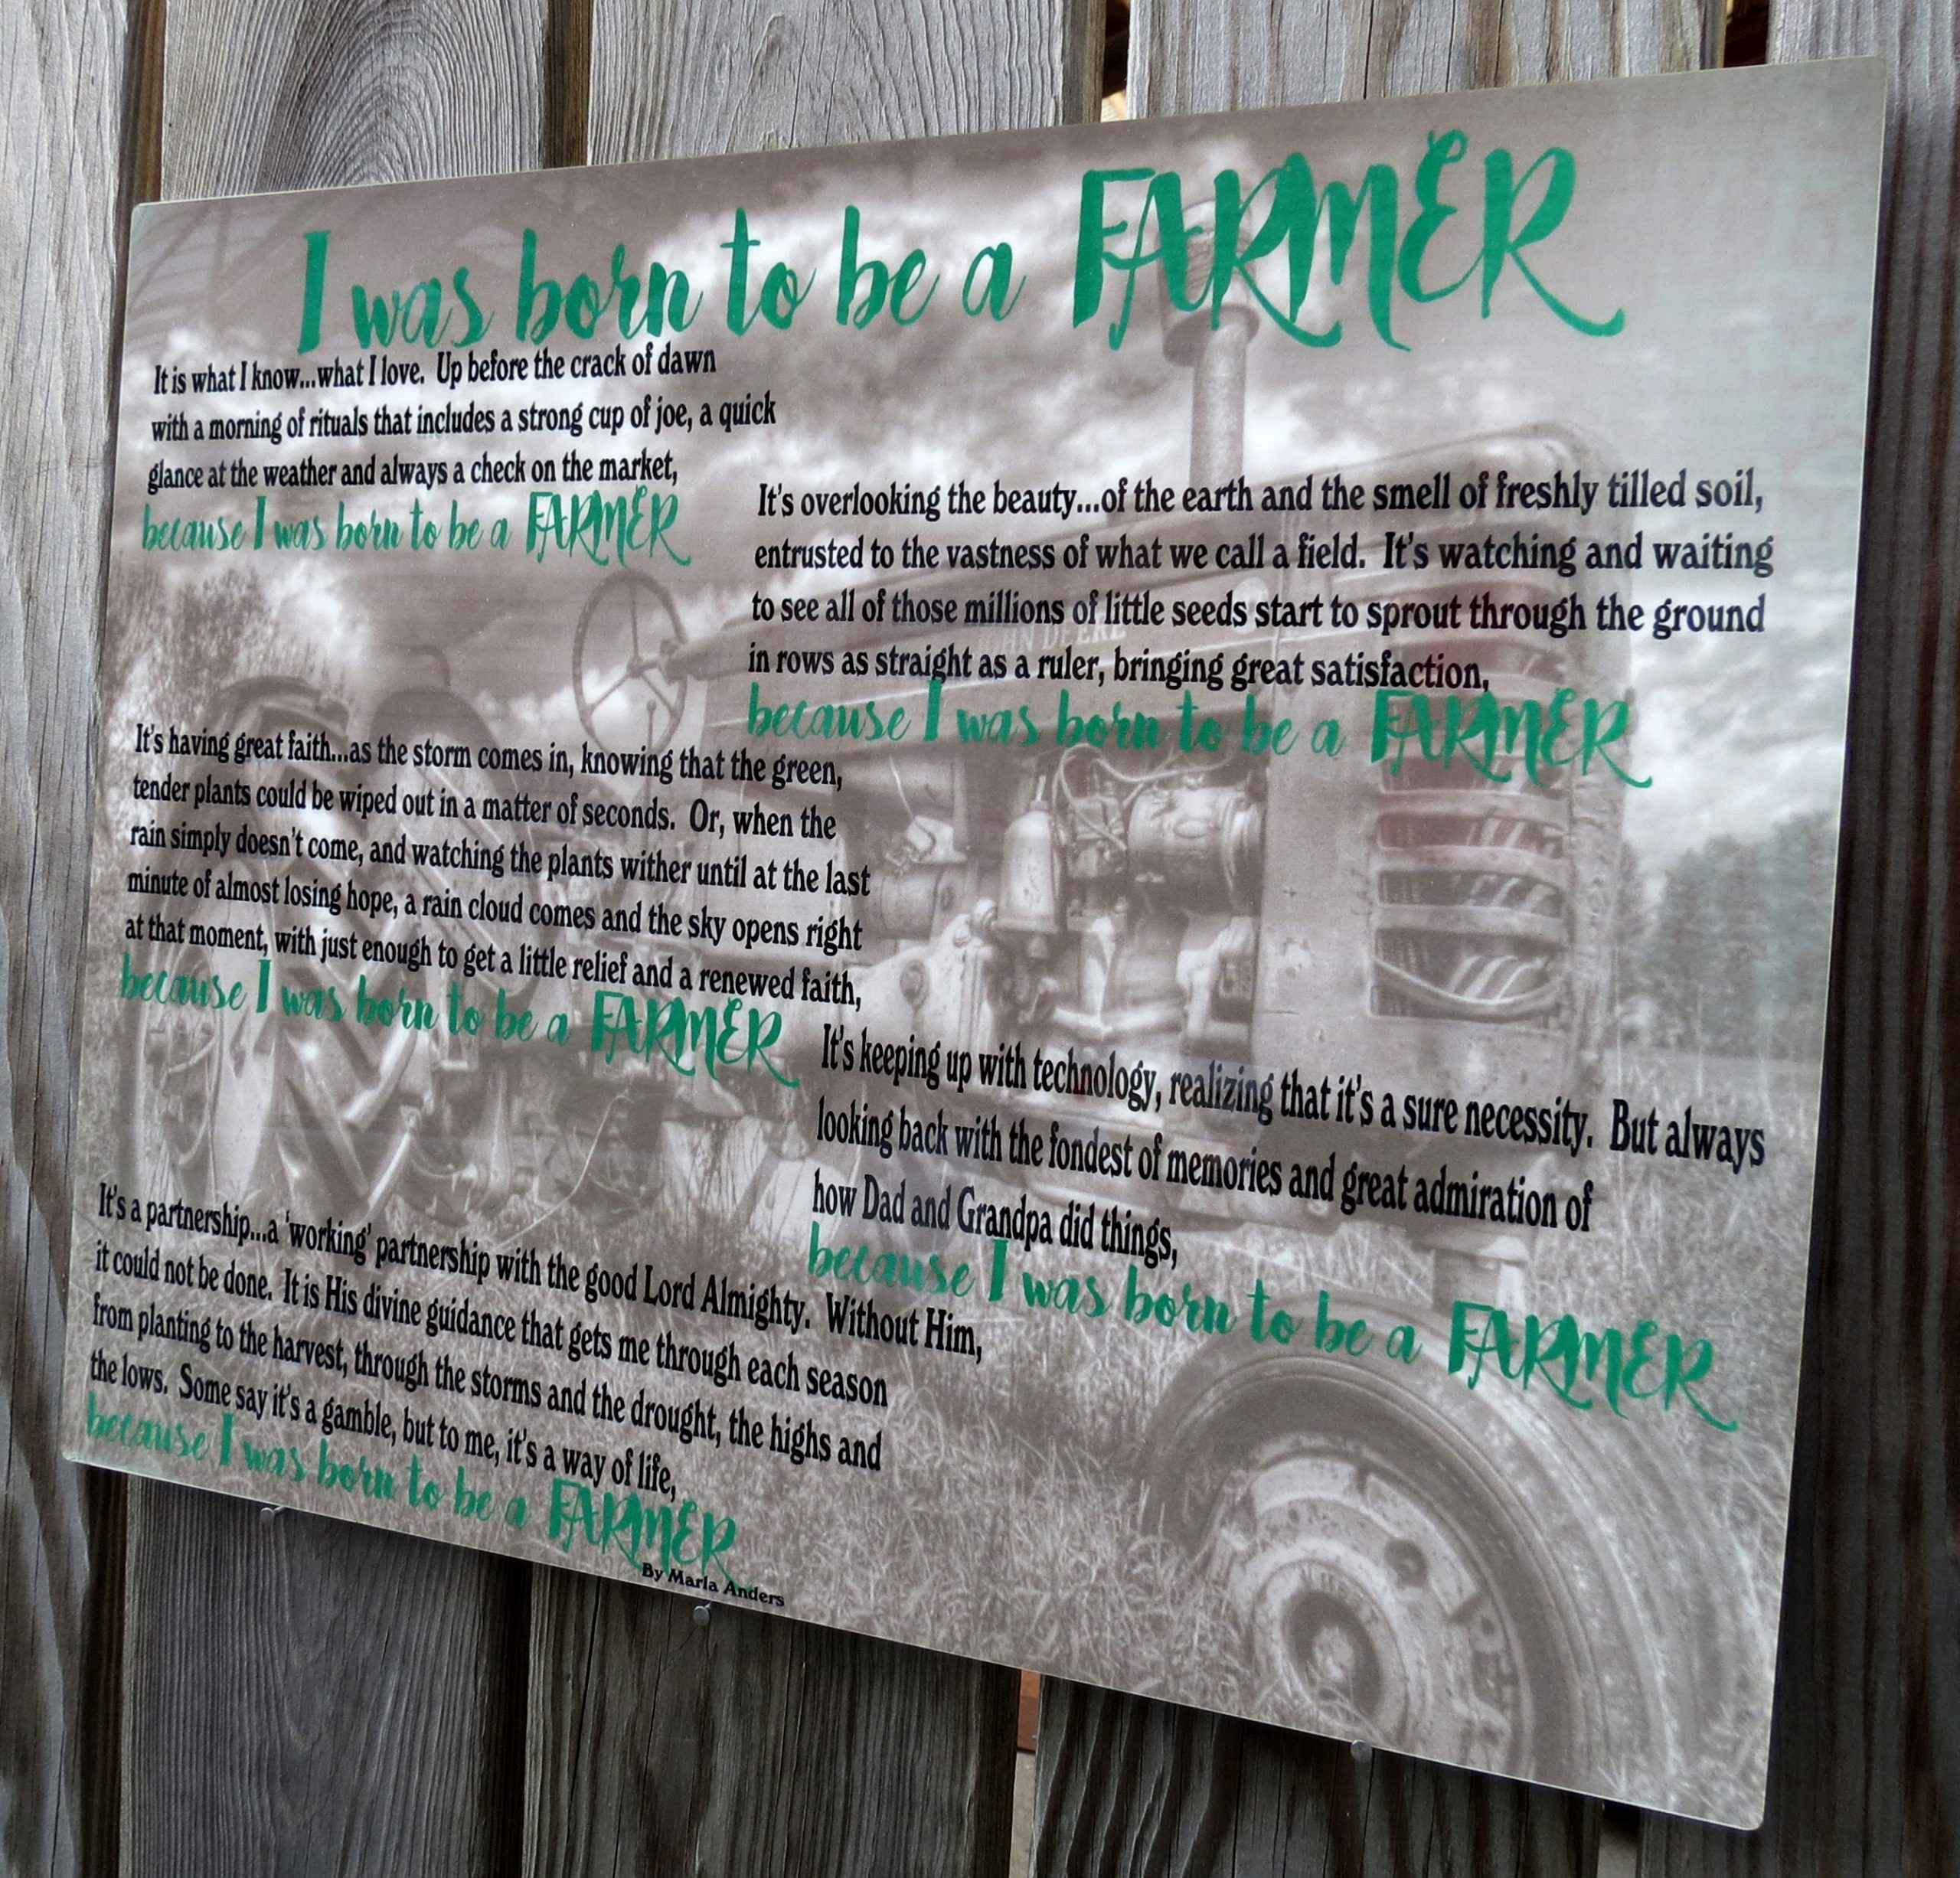 I was born to be a FARMER
It is what I know...what I love. Up before the crack of dawn
with a morning of rituals that includes a strong cup of joe, a quick
glance at the weather and always a check on the market,
because I was born to be a FARMER
It's overlooking the beauty...of the earth and the smell of freshly tilled soil,
entrusted to the vastness of what we call a field. It's watching and waiting
to see all of those millions of little seeds start to sprout through the ground
in rows as straight as a ruler, bringing great satisfaction,
because I was born to be a FARMER
It's having great faith...as the storm comes in, knowing that the green,
tender plants could be wiped out in a matter of seconds. Or, when the
rain simply doesn't come, and watching the plants wither until at the last
minute of almost losing hope, a rain cloud comes and the sky opens right
at that moment, with just enough to get a little relief and a renewed faith,
because I was born to be a FARMER
It's keeping up with technology, realizing that it's a sure necessity. But always
looking back with the fondest of memories and great admiration of
how Dad and Grandpa did things,
because I was born to be a FARMER
It's a partnership...a 'working' partnership with the good Lord Almighty. Without Him,
it could not be done. It is His divine guidance that gets me through each season
from planting to the harvest, through the storms and the drought, the highs and
the lows. Some say it's a gamble, but to me, it's a way of life,
because I was born to be a FARMER
By Marla Anders
DEERE